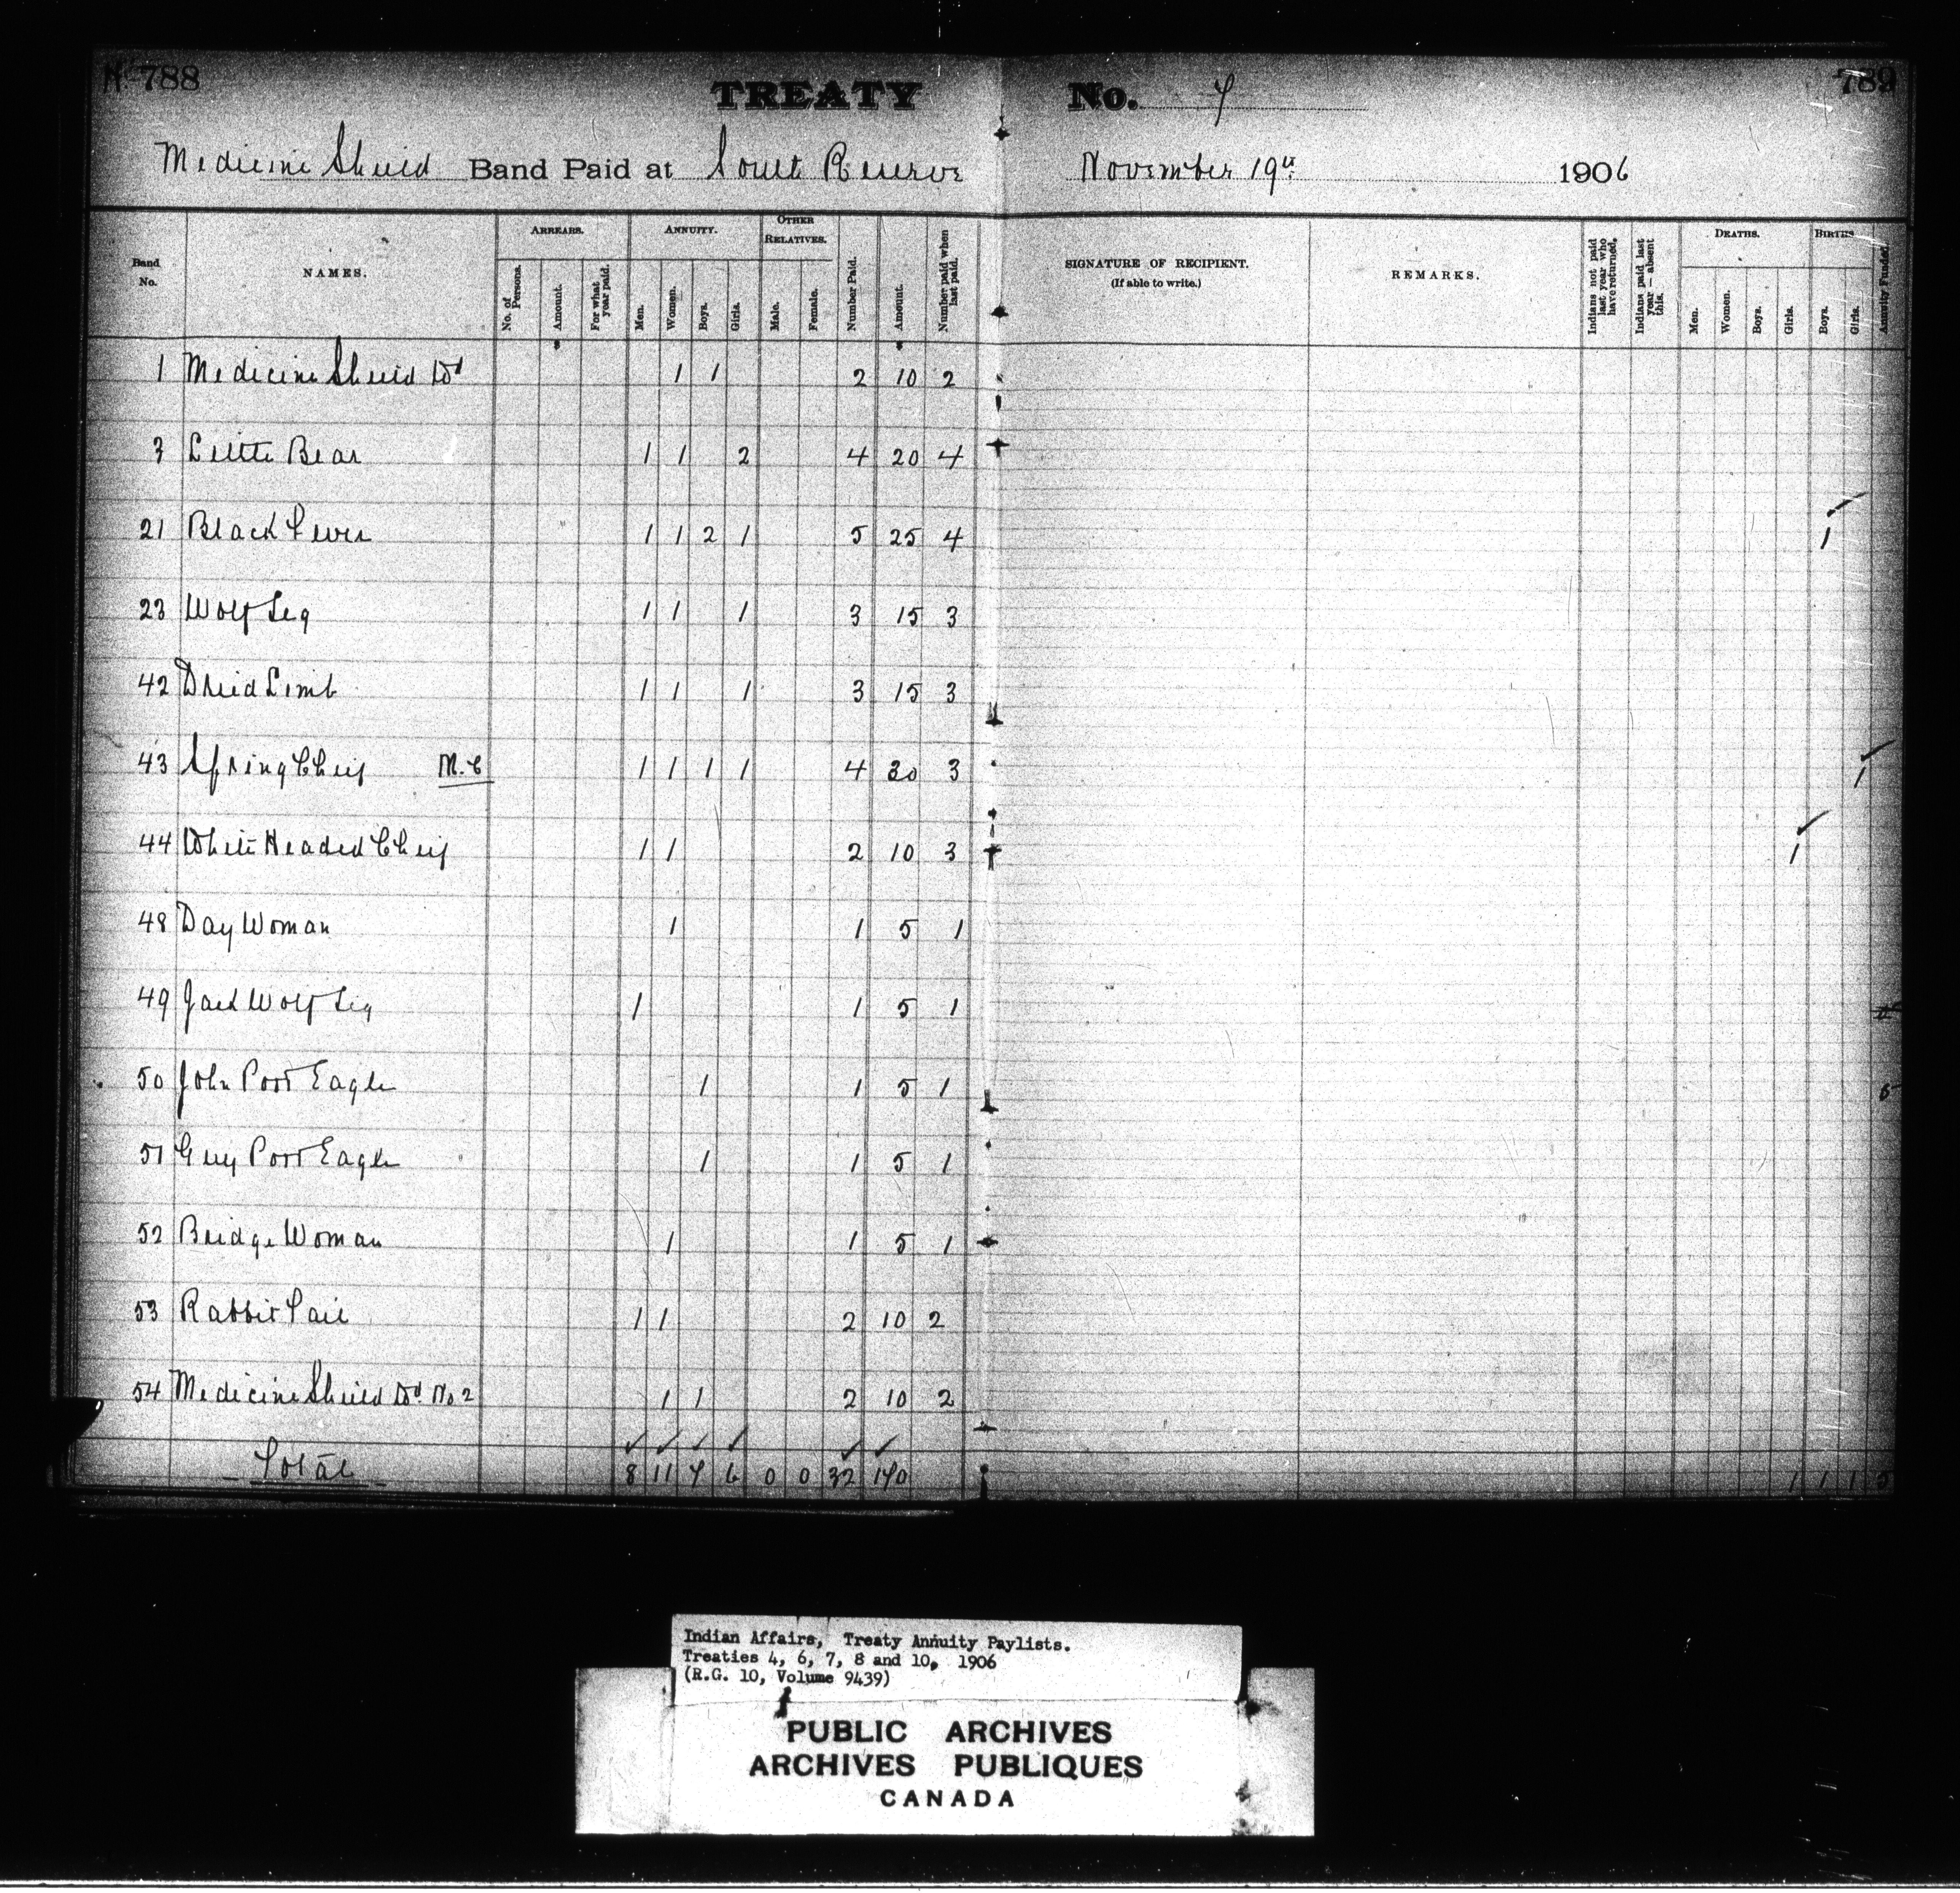 No 788 TREATY No. 7 789
Medicine Shield Band Paid at South Reserve November 19th 1906
Band No. NAMES. ARREARS. ANNUITY. OTHER RELATIVES. Number Paid. Amount. Number paid when last paid. SIGNATURE OF RECIPIENT. (If able to write.) REMARKS. Indians not paid last year who have returned. Indians paid last year absent this. DEATHS. BIRTHS Annuity Funded
No. of Persons. Amount. For what year paid. Men. Women. Boys. Girls. Male. Female. Men. Women. Boys. Girls. Boys. Girls.
1 Medicine Shield Wd 1 1 2 10 2
3 Little Bear 1 1 2 4 20 4
21 Black Fever 1 1 2 1 5 25 4 1
23 Wolf Leg 1 1 1 3 15 3
42 Dried Limb 1 1 1 3 15 3
43 Spring Cheif M.C 1 1 1 1 4 30 3 1
44 White Headed Cheif 1 1 2 10 3 1
48 Day Woman 1 1 5 1
49 Jack Wolf Leg 1 1 5 1
50 John Poor Eagle 1 1 5 1 5
51 Guy Poor Eagle 1 1 5 1
52 Bridge Woman 1 1 5 1
53 Rabbit Tail 1 1 2 10 2
54 Medicine Shield Wd No 2 1 1 2 10 2
Total 8 11 7 6 0 0 32 170 1 1 1 5
Indian Affairs, Treaty Annuity Paylists.
Treaties 4, 6, 7, 8 and 10, 1906
(R.G. 10, Volume 9439)
PUBLIC ARCHIVES
ARCHIVES PUBLIQUES
CANADA